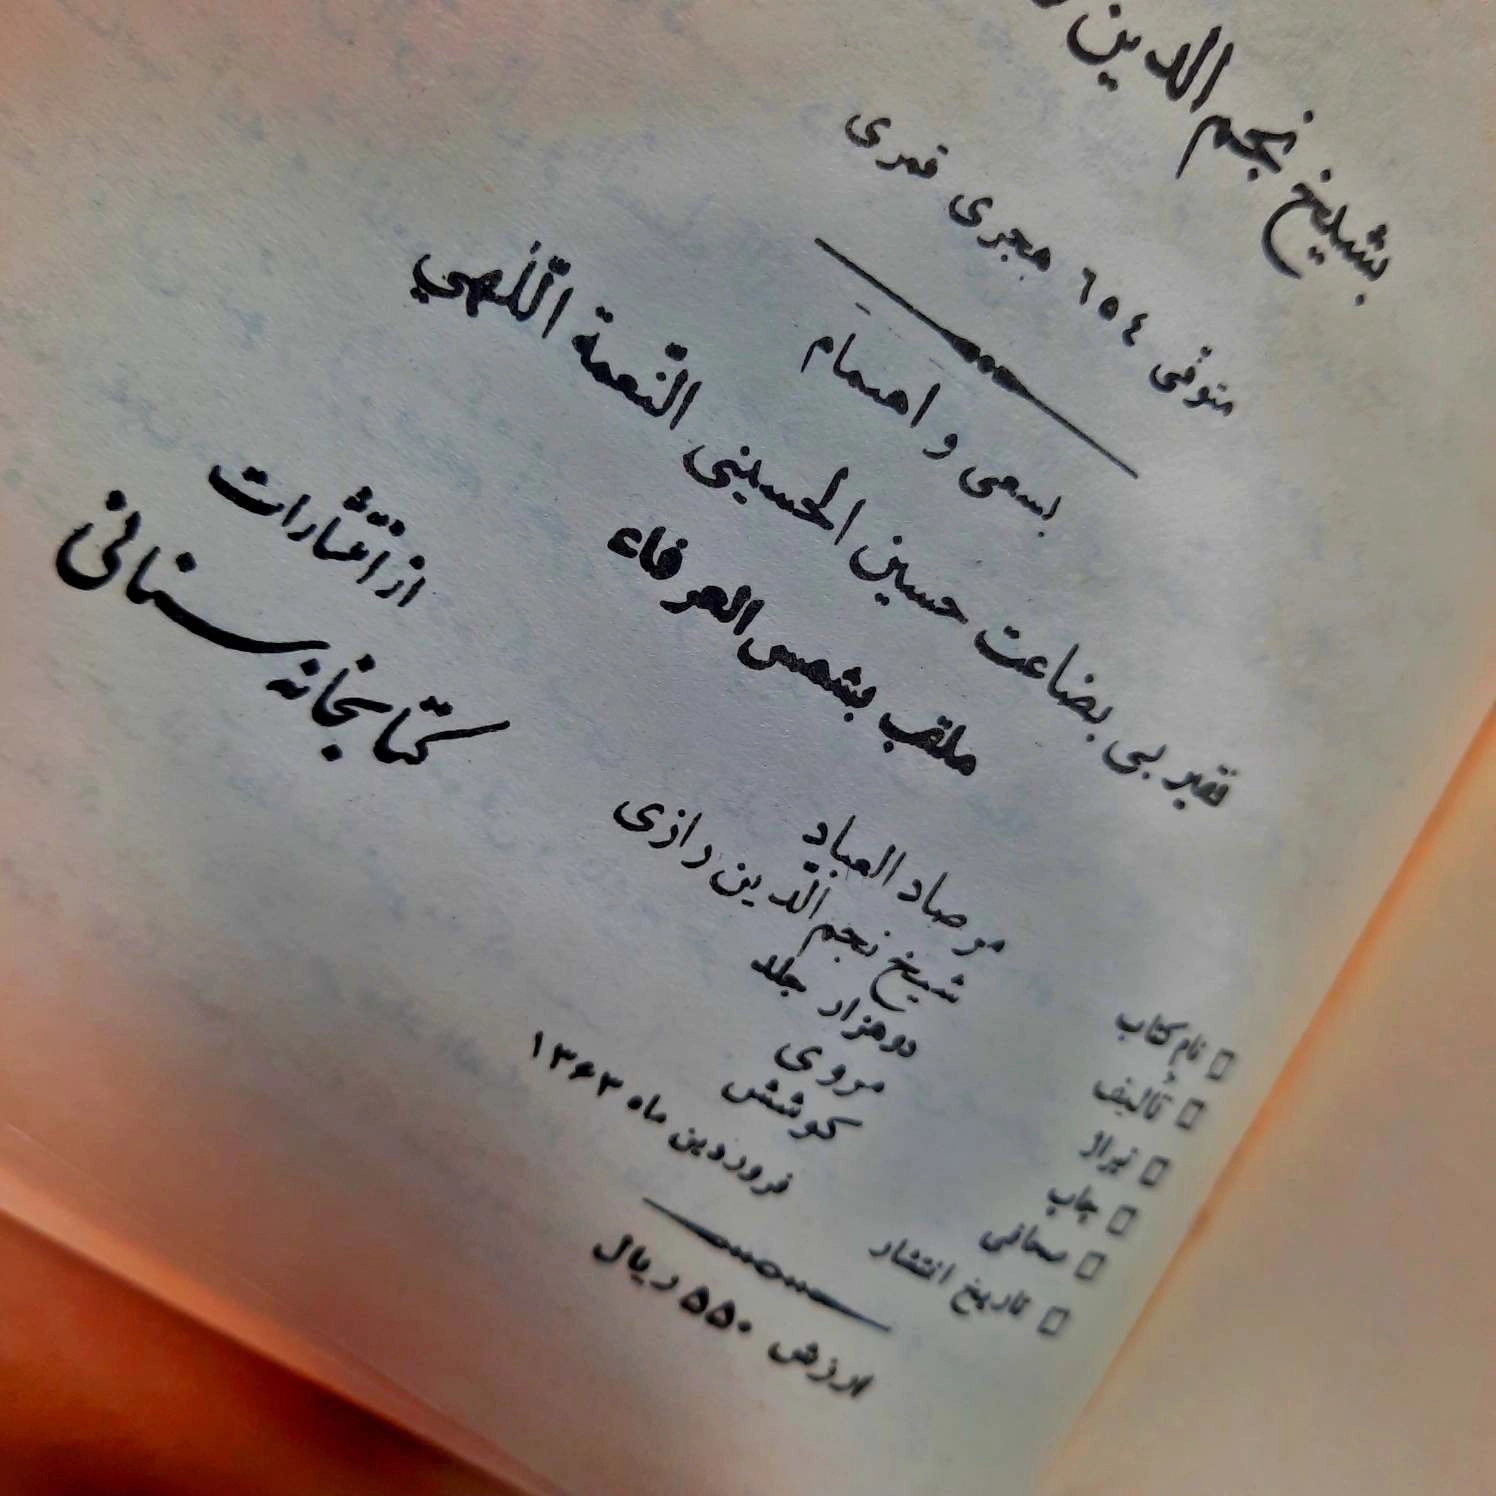 بشیخ نجم الدین
متوفّی ٦٥٤ هجری قمری
بسعی و اهتمام
فقیر بی بضاعت حسین الحسینی النّعمة اللّٰهي
ملقب بشمس العرفاء
از انتشارات
کتابخانه سنائی
□ نام کتاب مرصاد العباد
□ تألیف شیخ نجم الدّین رازی
□ تیراژ دوهزار جلد
□ چاپ مروی
□ صحافی کوشش
□ تاریخ انتشار فروردین ماه ۱۳۶۳
ارزش ۵۵۰ ریال